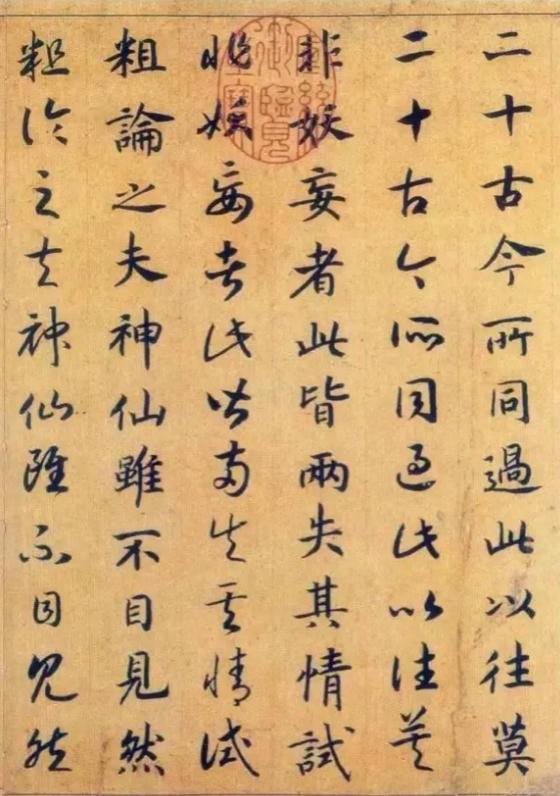 二十古今所同過此以往莫
二十古今所同過此以往莫
非妖妄者此皆兩失其情試
非妖妄者此皆兩失其情試
粗論之夫神仙雖不目見然
粗論之夫神仙雖不目見然
宣統御覽之寶